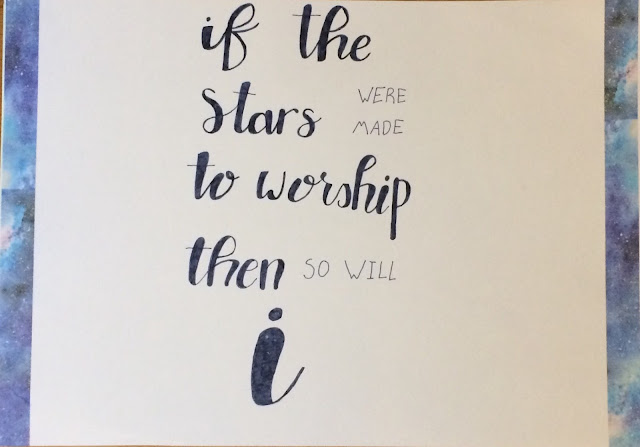 if the
stars WERE MADE
to worship
then SO WILL
i